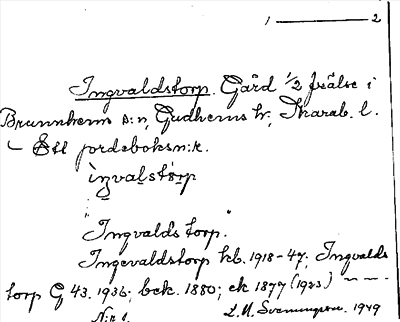 1 — 2
Ingvaldstorp. Gård 1/2 frälse i
Brunnhems s:n, Gudhems hr, Skarab. l.
Ett jordeboksn:r.
ìŋvalstorp
"Ingvalds torp."
Ingevaldstorp kb. 1918-47; Ingvalds
torp G 43. 1936; bek. 1880; ek 1877 (1923)
N:r 1. L. M. Svenungson. 1949